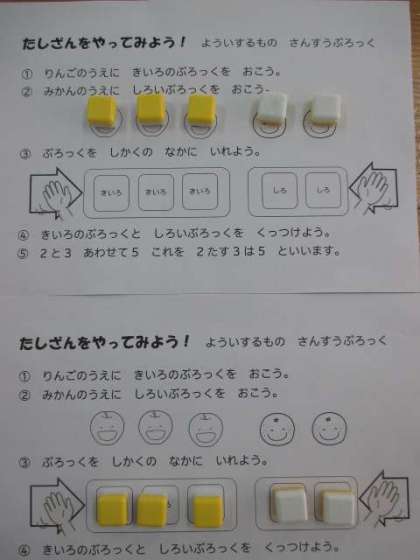 たしざんをやってみよう！ よういするもの さんすうぶろっく
① りんごのうえに きいろのぶろっくを おこう。
② みかんのうえに しろいぶろっくを おこう
③ ぶろっくを しかくの なかに いれよう。
きいろ きいろ きいろ しろ しろ
④ きいろのぶろっくと しろいぶろっくを くっつけよう。
⑤ 2と3 あわせて5 これを 2たす3は5 といいます。
たしざんをやってみよう！ よういするもの さんすうぶろっく
① りんごのうえに きいろのぶろっくを おこう。
② みかんのうえに しろいぶろっくを おこう。
③ ぶろっくを しかくの なかに いれよう。
④ きいろのぶろっくと しろいぶろっくを くっつけよう。